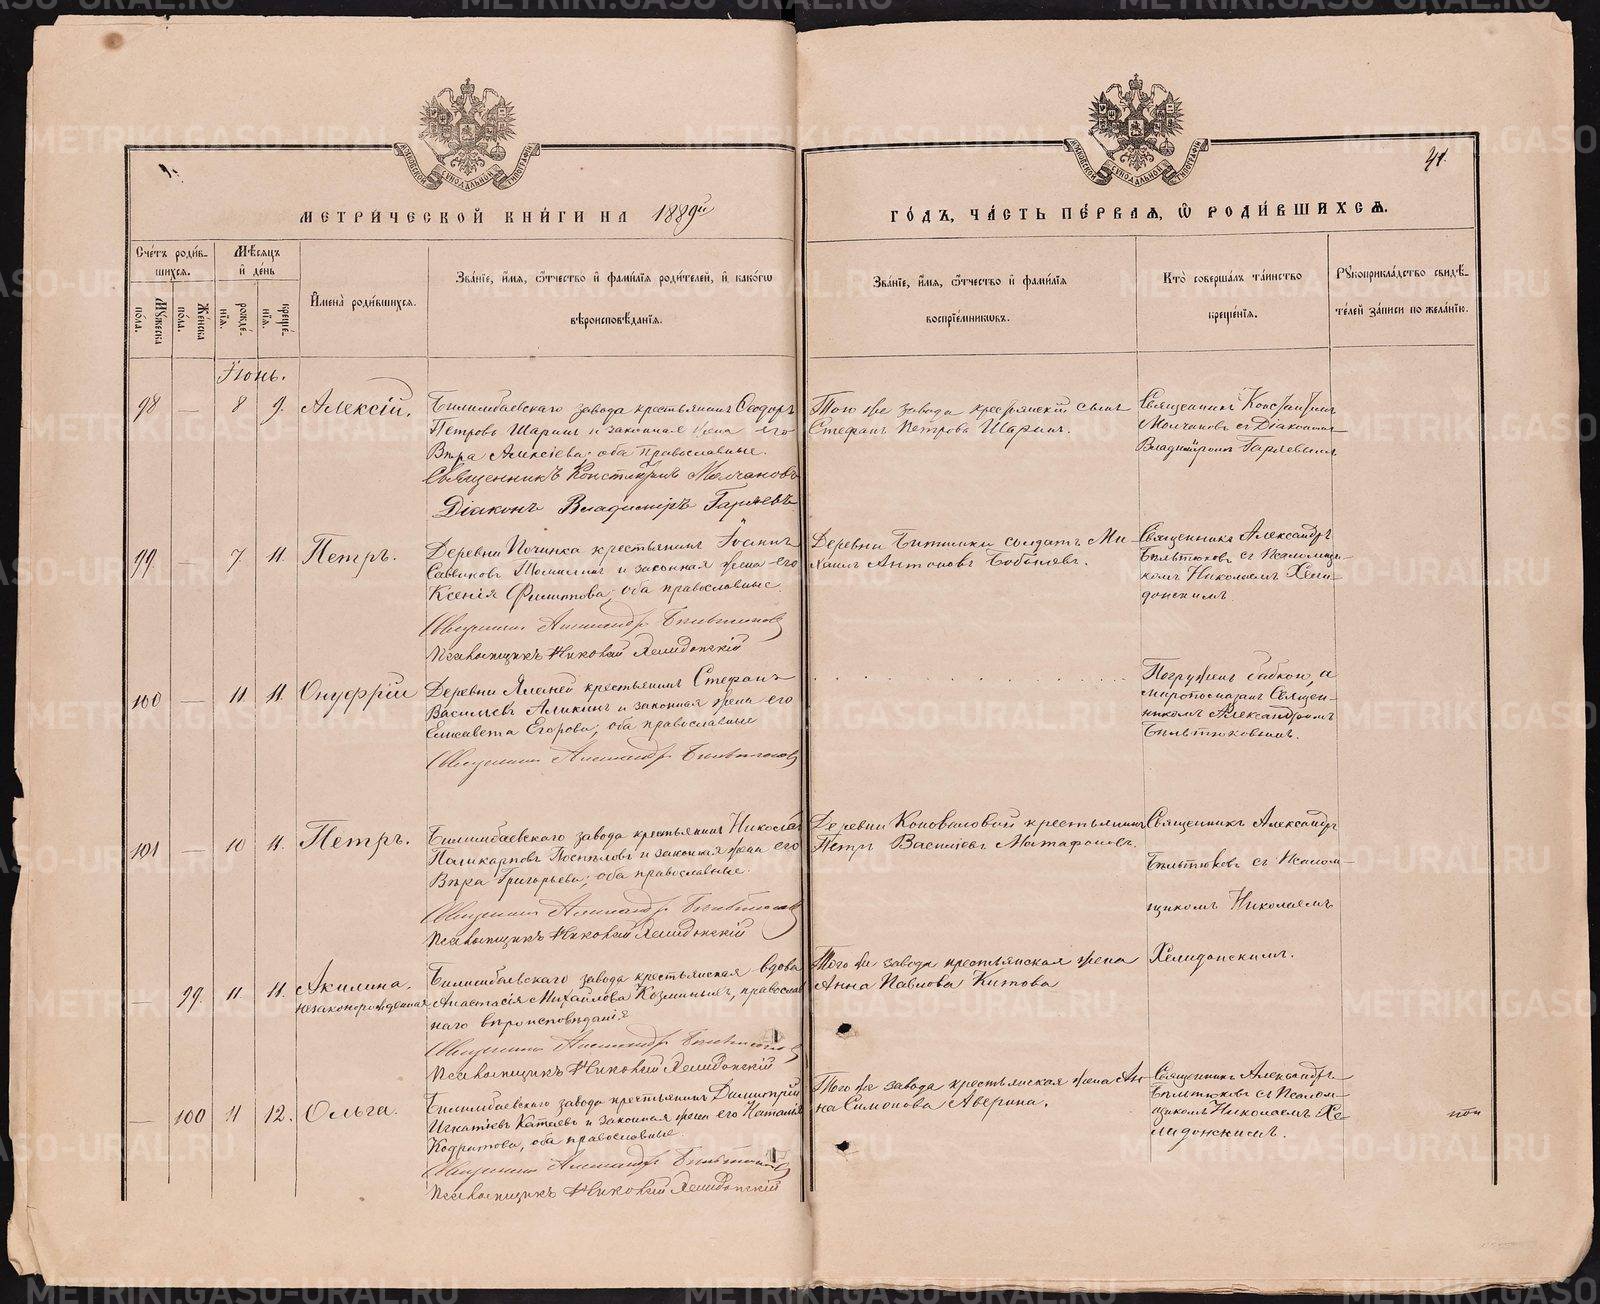 МЕТРИЧЕСКОЙ КНИГИ НА 1889й
ГОДЪ, ЧАСТЬ ПЕРВАЯ, Ѡ РОДИВШИХСЯ.
41
Счетъ родив-
шихся.
Мужеска пола.
Женска пола.
Мѣсяцъ и день
рожде-
нія.
креще-
нія.
Имена родившихся.
Званіе, имя, ѿчество и фамилія родителей, и какогѡ
вѣроисповѣданія.
Званіе, имя, ѿчество и фамилія
воспріемникѡвъ.
Кто совершалъ таинство
крещенія.
Рукоприкладство свидѣ-
телей записи по желанію.
Іюнь.
98 — 8 9. Алексій.
Билимбаевскаго завода крестьянинъ Ѳеодоръ
Петровъ Шаринъ и законная жена его
Вѣра Алексіева; оба православные.
Священникъ Константинъ Молчановъ
Діаконъ Владиміръ Гаряевъ
Того же завода крестьянскій сынъ
Стефанъ Петровъ Шаринъ.
Священникъ Константинъ
Молчановъ съ Діакономъ
Владиміромъ Гаряевымъ
99 — 7 11. Петръ.
Деревни Починка крестьянинъ Іоаннъ
Саввиновъ и законная жена его
Ксенія Филиппова, оба православные.
Священникъ Александръ Бѣльтюковъ
Псаломщикъ Николай Хелидонскій
Деревни Битимки солдатъ Ми-
хаилъ Антоновъ
Священникъ Александръ
Бѣльтюковъ съ Псаломщи-
комъ Николаемъ Хели-
донскимъ.
100 — 11 11. Онуфрій
Деревни крестьянинъ Стефанъ
Васильевъ Аликинъ и законная жена его
Елисавета Егорова; оба православные
Священникъ Александръ Бѣльтюковъ
Погруженъ бабкою, а
миропомазанъ Священ-
никомъ Александромъ
Бѣльтюковымъ.
101 — 10 11. Петръ.
Билимбаевскаго завода крестьянинъ Николай
Поликарповъ Поспѣловъ и законная жена его
Вѣра Григорьева; оба православные.
Священникъ Александръ Бѣльтюковъ
Псаломщикъ Николай Хелидонскій
Деревни Коноваловой крестьянинъ
Петръ Васильевъ Матафоновъ.
Священникъ Александръ
Бѣльтюковъ съ Псалом-
щикомъ Николаемъ
Хелидонскимъ.
— 99. 11. 11. Акилина.
незаконорожденная
Билимбаевскаго завода крестьянская вдова
Анастасія Михайлова Козминыхъ, православ
наго вѣроисповѣданія
Священникъ Александръ Бѣльтюковъ
Псаломщикъ Николай Хелидонскій
Того же завода крестьянская жена
Анна Павлова Китова
— 100 11 12. Ольга.
Билимбаевскаго завода крестьянинъ Димитрій
Игнатіевъ Катаевъ и законная жена его Наталія
Кодратова, оба православные.
Священникъ Александръ Бѣльтюковъ
Псаломщикъ Николай Хелидонскій
Того же завода крестьянская жена Ан-
на Симонова Аверина.
Священникъ Александръ
Бѣльтюковъ съ Псалом-
щикомъ Николаемъ Хе-
лидонскимъ.
METRIKI.GASO-URAL.RU